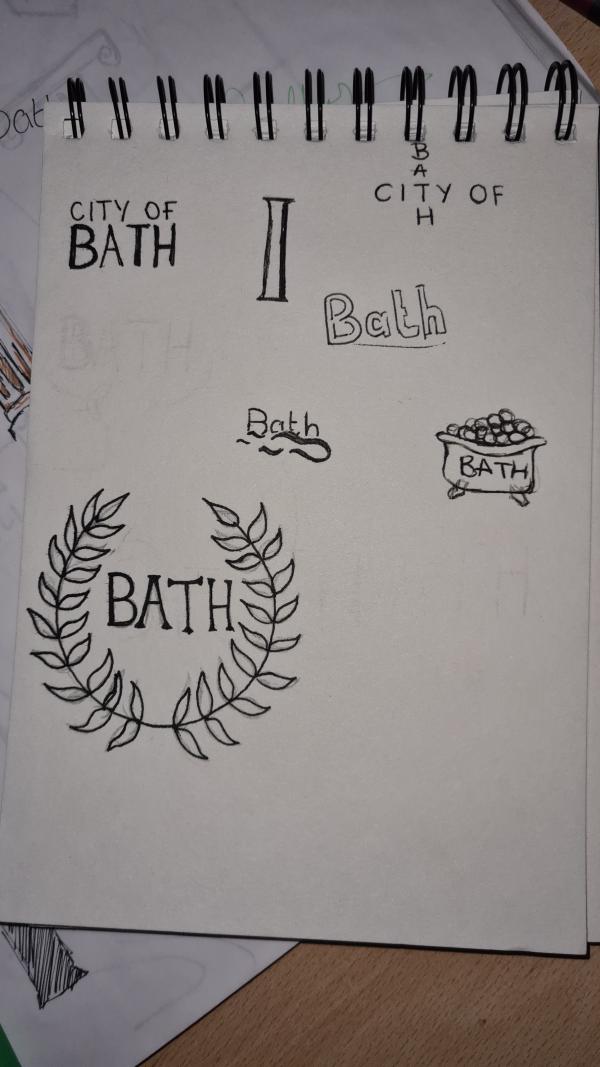 CITY OF
BATH
B
A
CITY OF
H
Bath
Bath
BATH
BATH
BATH